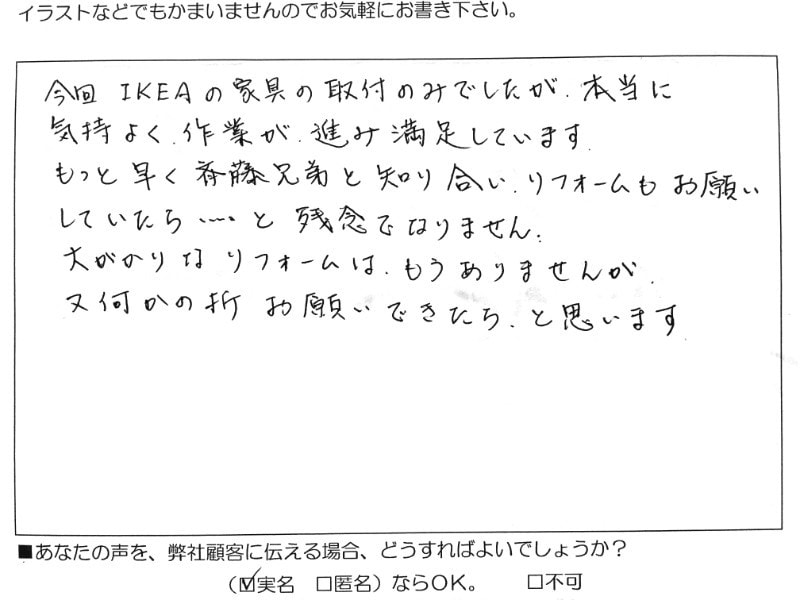 イラストなどでもかまいませんのでお気軽にお書き下さい。
今回 IKEAの家具の取付のみでしたが、本当に
気持よく、作業が、進み満足しています。
もっと早く斉藤兄弟と知り合い、リフォームもお願い
していたら……と残念でなりません。
大がかりなリフォームは、もうありませんが、
又何かの折 お願いできたら、と思います
■あなたの声を、弊社顧客に伝える場合、どうすればよいでしょうか？
（☑実名　□匿名）ならOK。　□不可